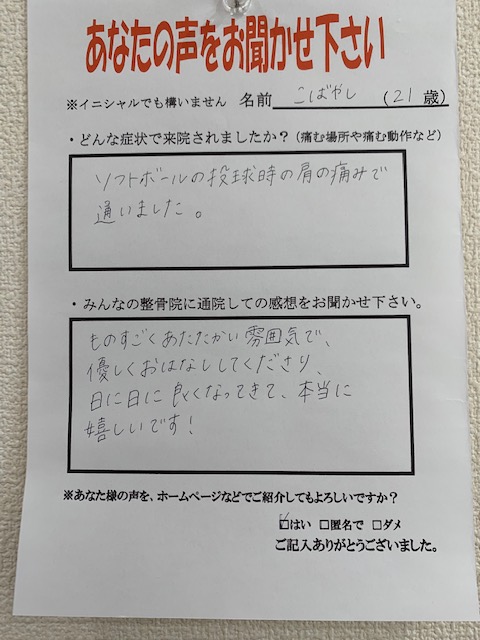 あなたの声をお聞かせ下さい
※イニシャルでも構いません 名前 こばやし (21歳)
・どんな症状で来院されましたか？(痛む場所や痛む動作など)
ソフトボールの投球時の肩の痛みで
通いました。
・みんなの整骨院に通院しての感想をお聞かせ下さい。
ものすごくあたたかい雰囲気で、
優しくおはなししてくださり、
日に日に良くなってきて、本当に
嬉しいです！
※あなた様の声を、ホームページなどでご紹介してもよろしいですか？
☑はい □匿名で □ダメ
ご記入ありがとうございました。